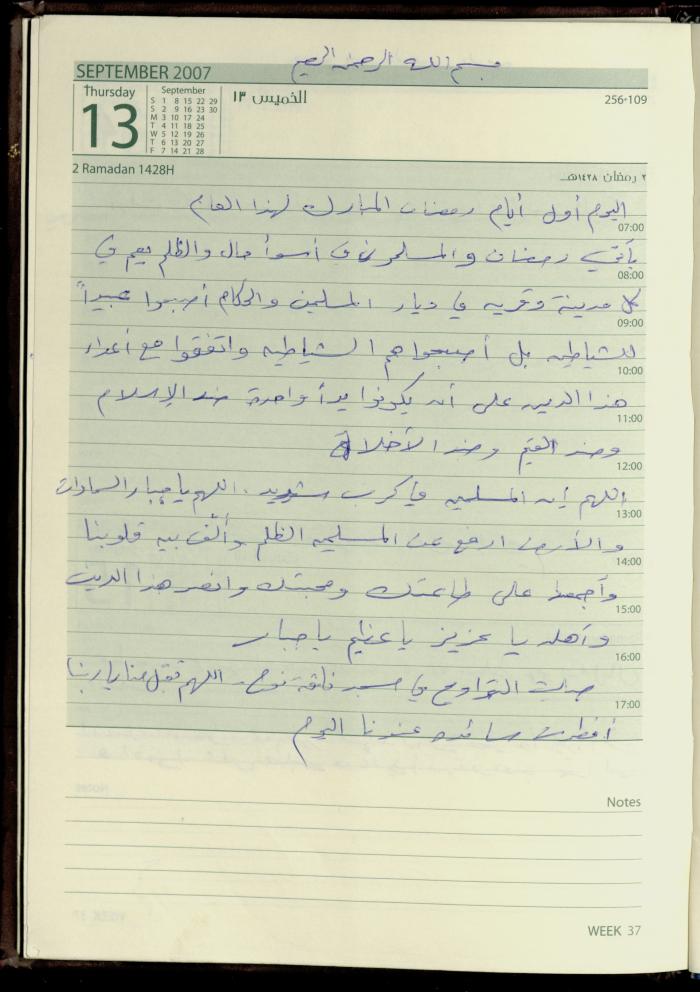 بسم الله الرحمن الرحيم
SEPTEMBER 2007
Thursday
13
September
S 1 8 15 22 29
S 2 9 16 23 30
M 3 10 17 24
T 4 11 18 25
W 5 12 19 26
T 6 13 20 27
F 7 14 21 28
الخميس ١٣
256-109
2 Ramadan 1428H
٢ رمضان ١٤٢٨هـ
اليوم أول أيام رمضان المبارك لهذا العام
07:00
يأتي رمضان والمسلمون في أسوأ حال والظلم يعم في
08:00
كل مدينة وقرية في ديار المسلمين والحكام أصبحوا عبيداً
09:00
للشياطين بل أصبحوا هم الشياطين واتفقوا مع أعداء
10:00
هذا الدين على أن يكونوا يداً واحدة ضد الإسلام
11:00
وضد القيم وضد الأخلاق
12:00
اللهم إن المسلمين في كرب شديد . اللهم يا جبار السماوات
13:00
والأرض ارفع عن المسلمين الظلم وألّف بين قلوبنا
14:00
وأجمعنا على طاعتك ومحبتك وانصر هذا الدين
15:00
وأهله يا عزيز يا عظيم يا جبار
16:00
صليت التراويح في مسجد . اللهم تقبل منا يا ربنا
17:00
أفطرت عندنا اليوم
Notes
WEEK 37